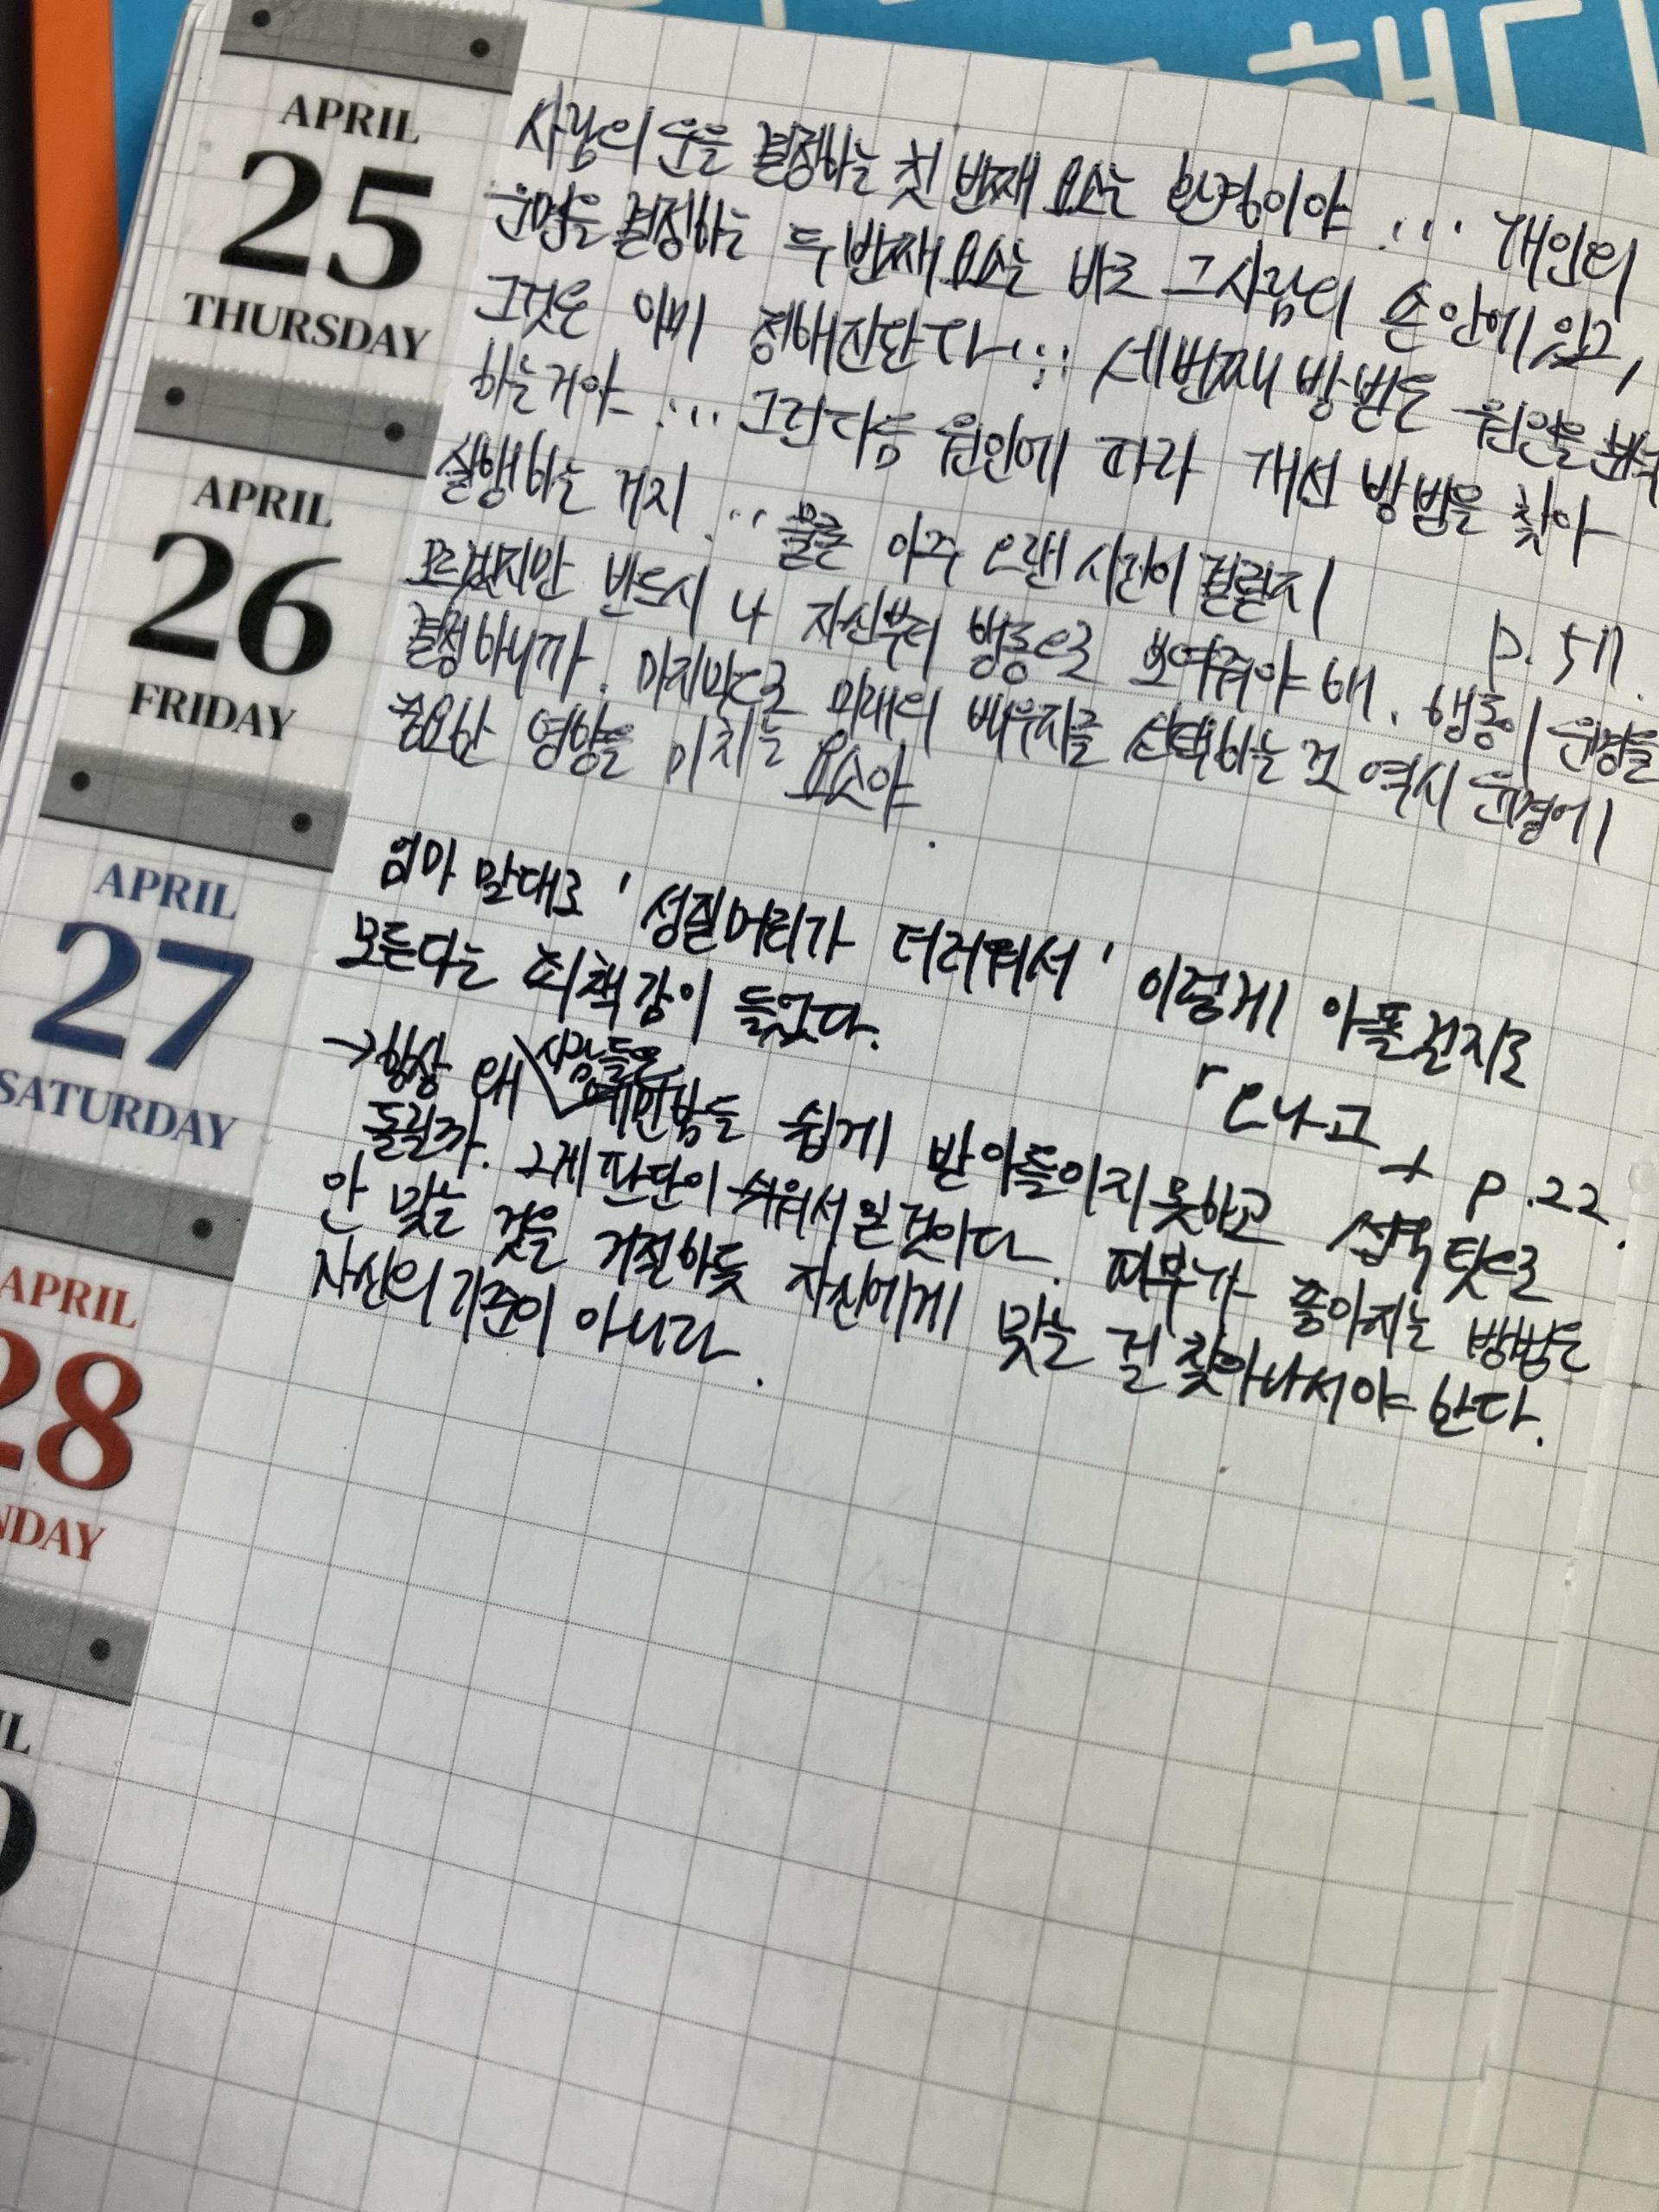 해
APRIL
25
THURSDAY
사람의 운을 결정하는 첫 번째 요소는 환경이야 ... 개인의
운명을 결정하는 두번째 요소는 바로 그사람의 손 안에 있고,
그것은 이미 정해진단다 ... 세번째 방법은 원인을 분석
하는거야 ... 그런다음 원인에 따라 개선 방법을 찾아
실행하는 거지 ... 물론 아주 오랜 시간이 걸릴지
p. 511.
APRIL
26
FRIDAY
모르겠지만 반드시 나 자신부터 행동으로 보여줘야 해. 행동이 운명을
결정하니까. 마지막으로 미래의 배우자를 선택하는 것 역시 운명에
중요한 영향을 미치는 요소야.
APRIL
27
SATURDAY
엄마 말대로 '성질머리가 더러워서' 이렇게 아픈건지도
모른다는 죄책감이 들었다.
「오나고 p.22.
→항상 왜 사람들은 예민함을 쉽게 받아들이지 못하고 성격 탓으로
돌릴까. 그게 판단이 쉬워서 일 것이다. 피부가 좋아지는 방법은
안 맞는 것을 거절하듯 자신에게 맞는 걸 찾아나서야 한다.
자신의 기준이 아니라.
APRIL
28
NDAY
IL